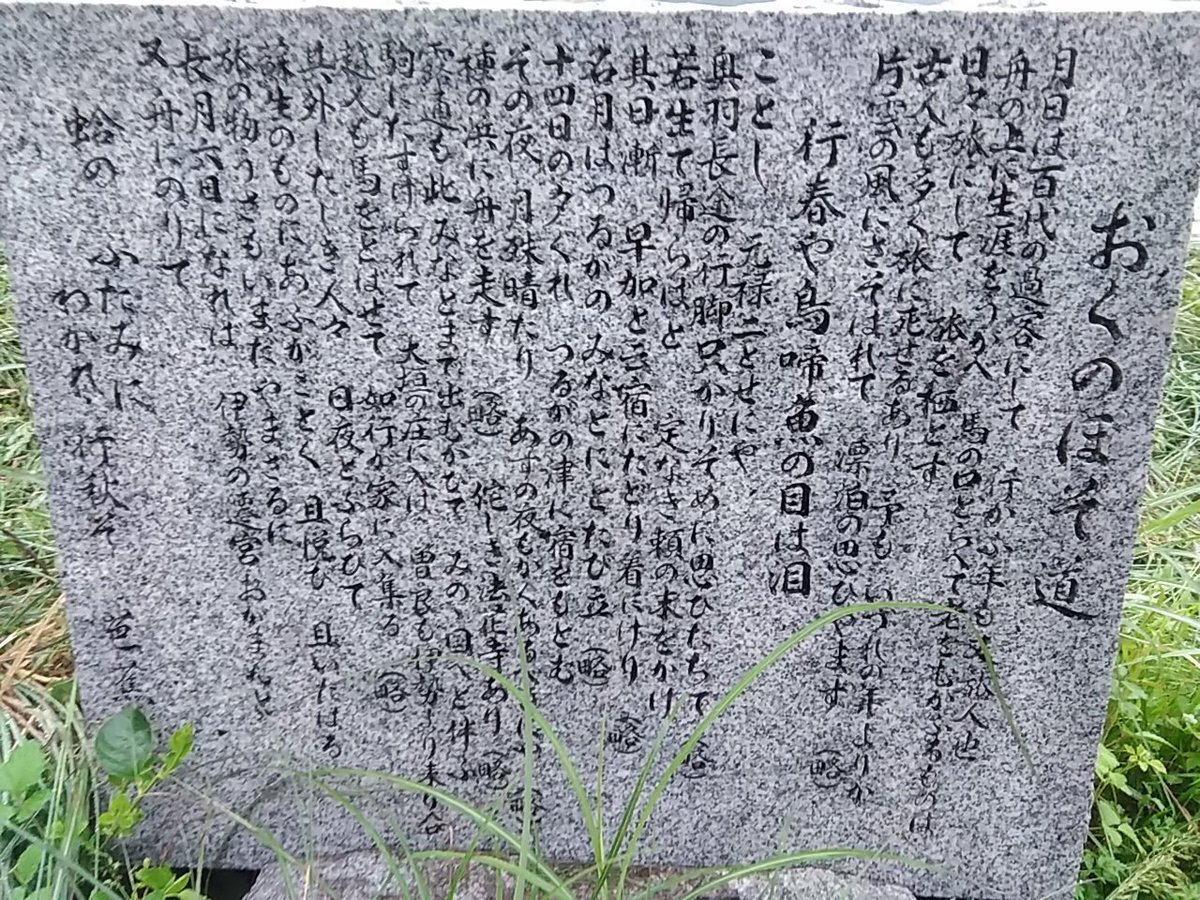 おくのほそ道
月日は百代の過客にして 行かふ年も又旅人也
舟の上に生涯をうかへ 馬の口とらへて老をむかふるものは
日々旅にして 旅を栖とす
古人も多く旅に死せるあり 予も いつれの年よりか
片雲の風にさそはれて 漂泊の思ひやます (略)
行春や鳥啼魚の目は泪
ことし 元禄二とせにや
奥羽長途の行脚只かりそめに思ひたちて (略)
若生て帰らはと 定なき頼の末をかけ
其日漸 早加と云宿にたどり着にけり (略)
名月はつるがの みなとにとたび立 (略)
十四日の夕ぐれ つるがの津に宿をもとむ
その夜 月殊晴たり あすの夜もかくあるへ (略)
種の浜に舟を走す (略) 侘しき法花寺あり (略)
露通も此みなとまで出むかひて みのゝ国へと伴ふ
駒にたすけられて 大垣の庄に入は 曽良も伊勢より来り合
越人も馬をとばせて 如行が家に入集る (略)
其外したしき人々 日夜とふらひて
蘇生のものにあふがことく 且悦ひ 且いたはる
旅の物うさもいまだやまさるに
長月六日になれは 伊勢の遷宮おかまんと
又 舟にのりて
蛤の ふたみに
わかれ 行秋そ 芭蕉